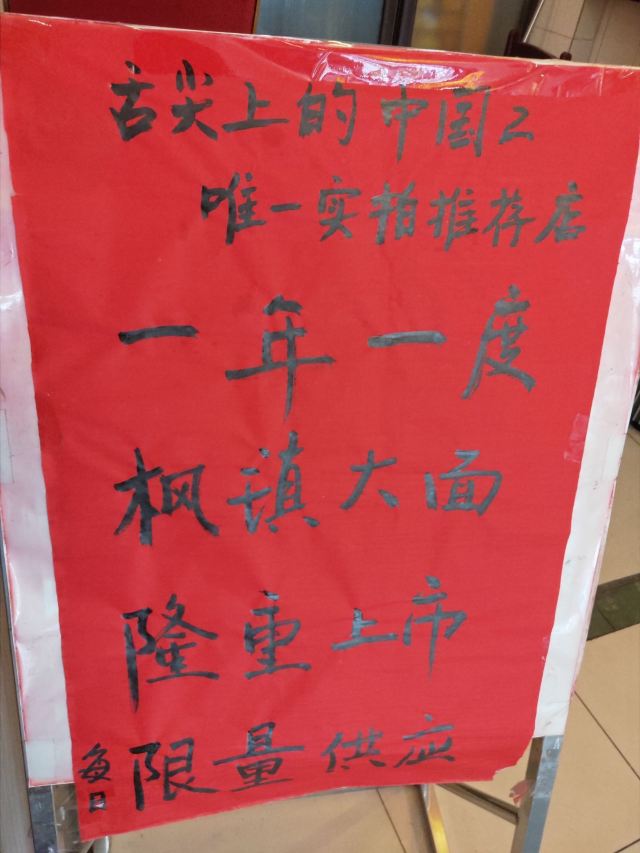 舌尖上的中国2
唯一实拍推荐店
一年一度
枫镇大面
隆重上市
每日限量供应